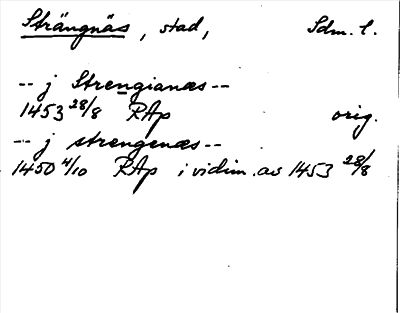 Strängnäs, stad, Sdm. l.
-- j Strengianæs --
1453 28/8 RAp orig.
-- j strengenæs --
1450 4/10 RAp i vidim. av 1453 28/8